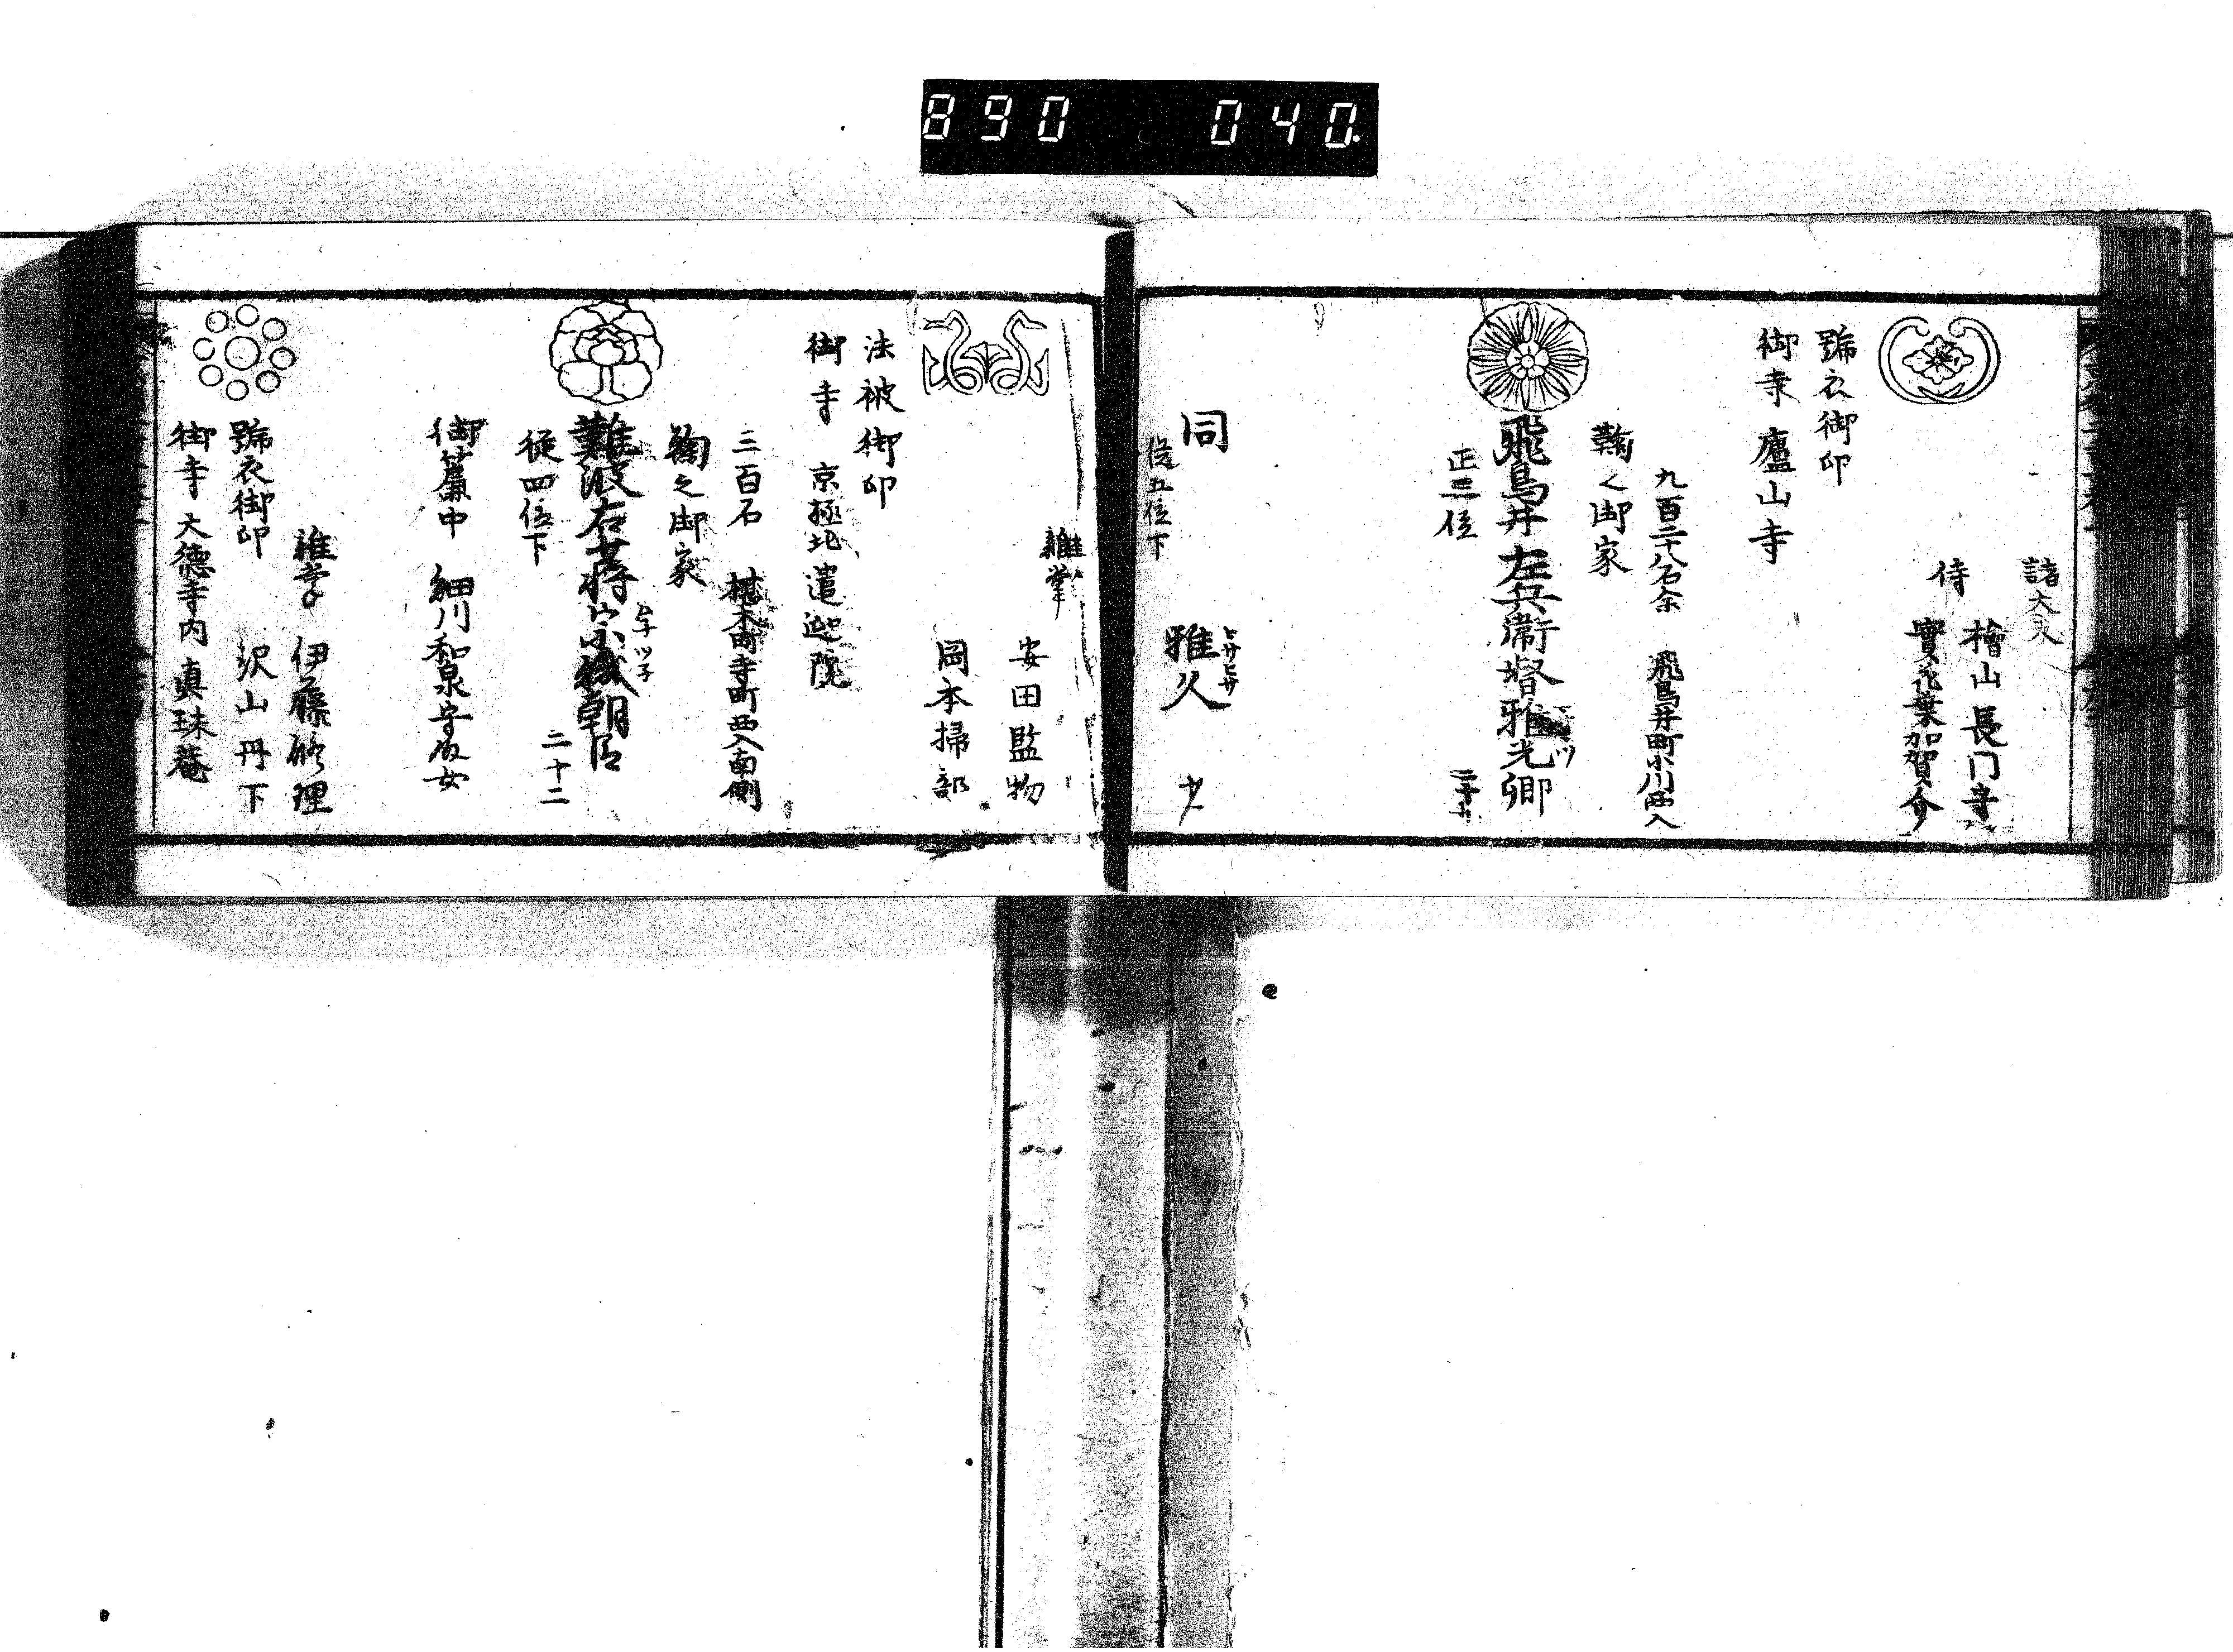 890 040
諸大夫
檜山長門守
侍
實花葉加賀介
號衣御印
御寺 廬山寺
九百二十八石余 飛鳥井町小川西入
鞠之御家
飛鳥井左兵衛督雅光卿
正三位
同 雅久 廿
ヒサ
従五位下
雜掌
安田監物
岡本掃部
法被御印
御寺 京極北遣迎院
三百石 椹木町寺町西入南側
鞠之御家
難波右少将宗職朝臣
ムネ
従四位下 二十二
御簾中 細川和泉守女
雜掌 伊藤修理
沢山丹下
號衣御印
御寺 大德寺内 真珠菴